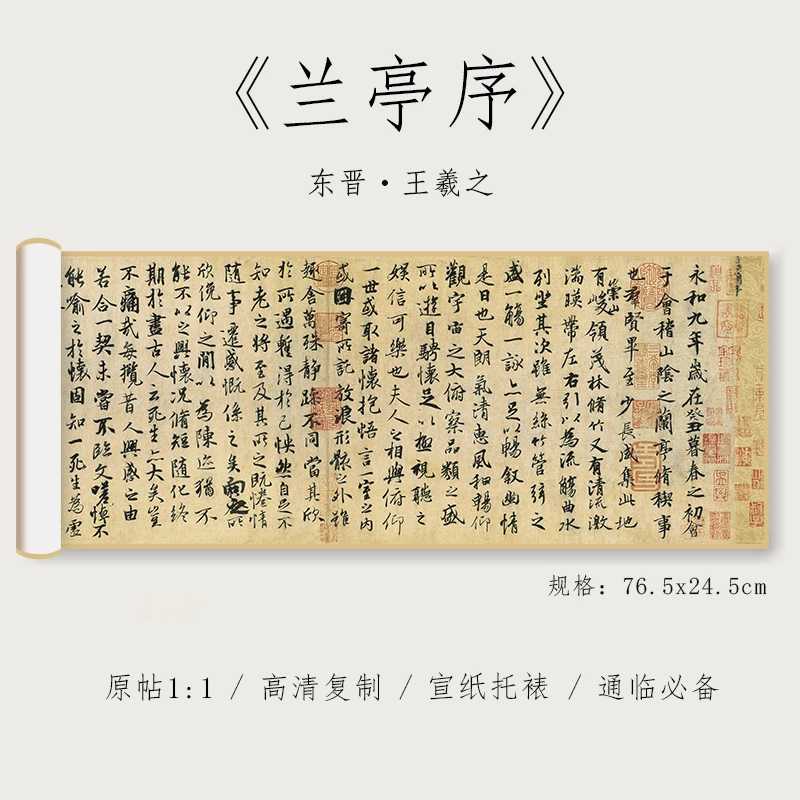 《兰亭序》
东晋·王羲之
永和九年歲在癸丑暮春之初會
于會稽山陰之蘭亭脩稧事
也羣賢畢至少長咸集此地
有崇山峻領茂林脩竹又有清流激
湍暎帶左右引以為流觴曲水
列坐其次雖無絲竹管弦之
盛一觴一詠亦足以暢敘幽情
是日也天朗氣清惠風和暢仰
觀宇宙之大俯察品類之盛
所以遊目騁懷足以極視聽之
娛信可樂也夫人之相與俯仰
一世或取諸懷抱悟言一室之內
或因寄所託放浪形骸之外雖
趣舍萬殊靜躁不同當其欣
於所遇暫得於己怏然自足不
知老之將至及其所之既惓情
隨事遷感慨係之矣向之所
欣俛仰之閒以為陳迹猶不
能不以之興懷況脩短隨化終
期於盡古人云死生亦大矣豈
不痛哉每攬昔人興感之由
若合一契未嘗不臨文嗟悼不
能喻之於懷固知一死生為虛
规格：76.5x24.5cm
原帖1:1 / 高清复制 / 宣纸托裱 / 通临必备